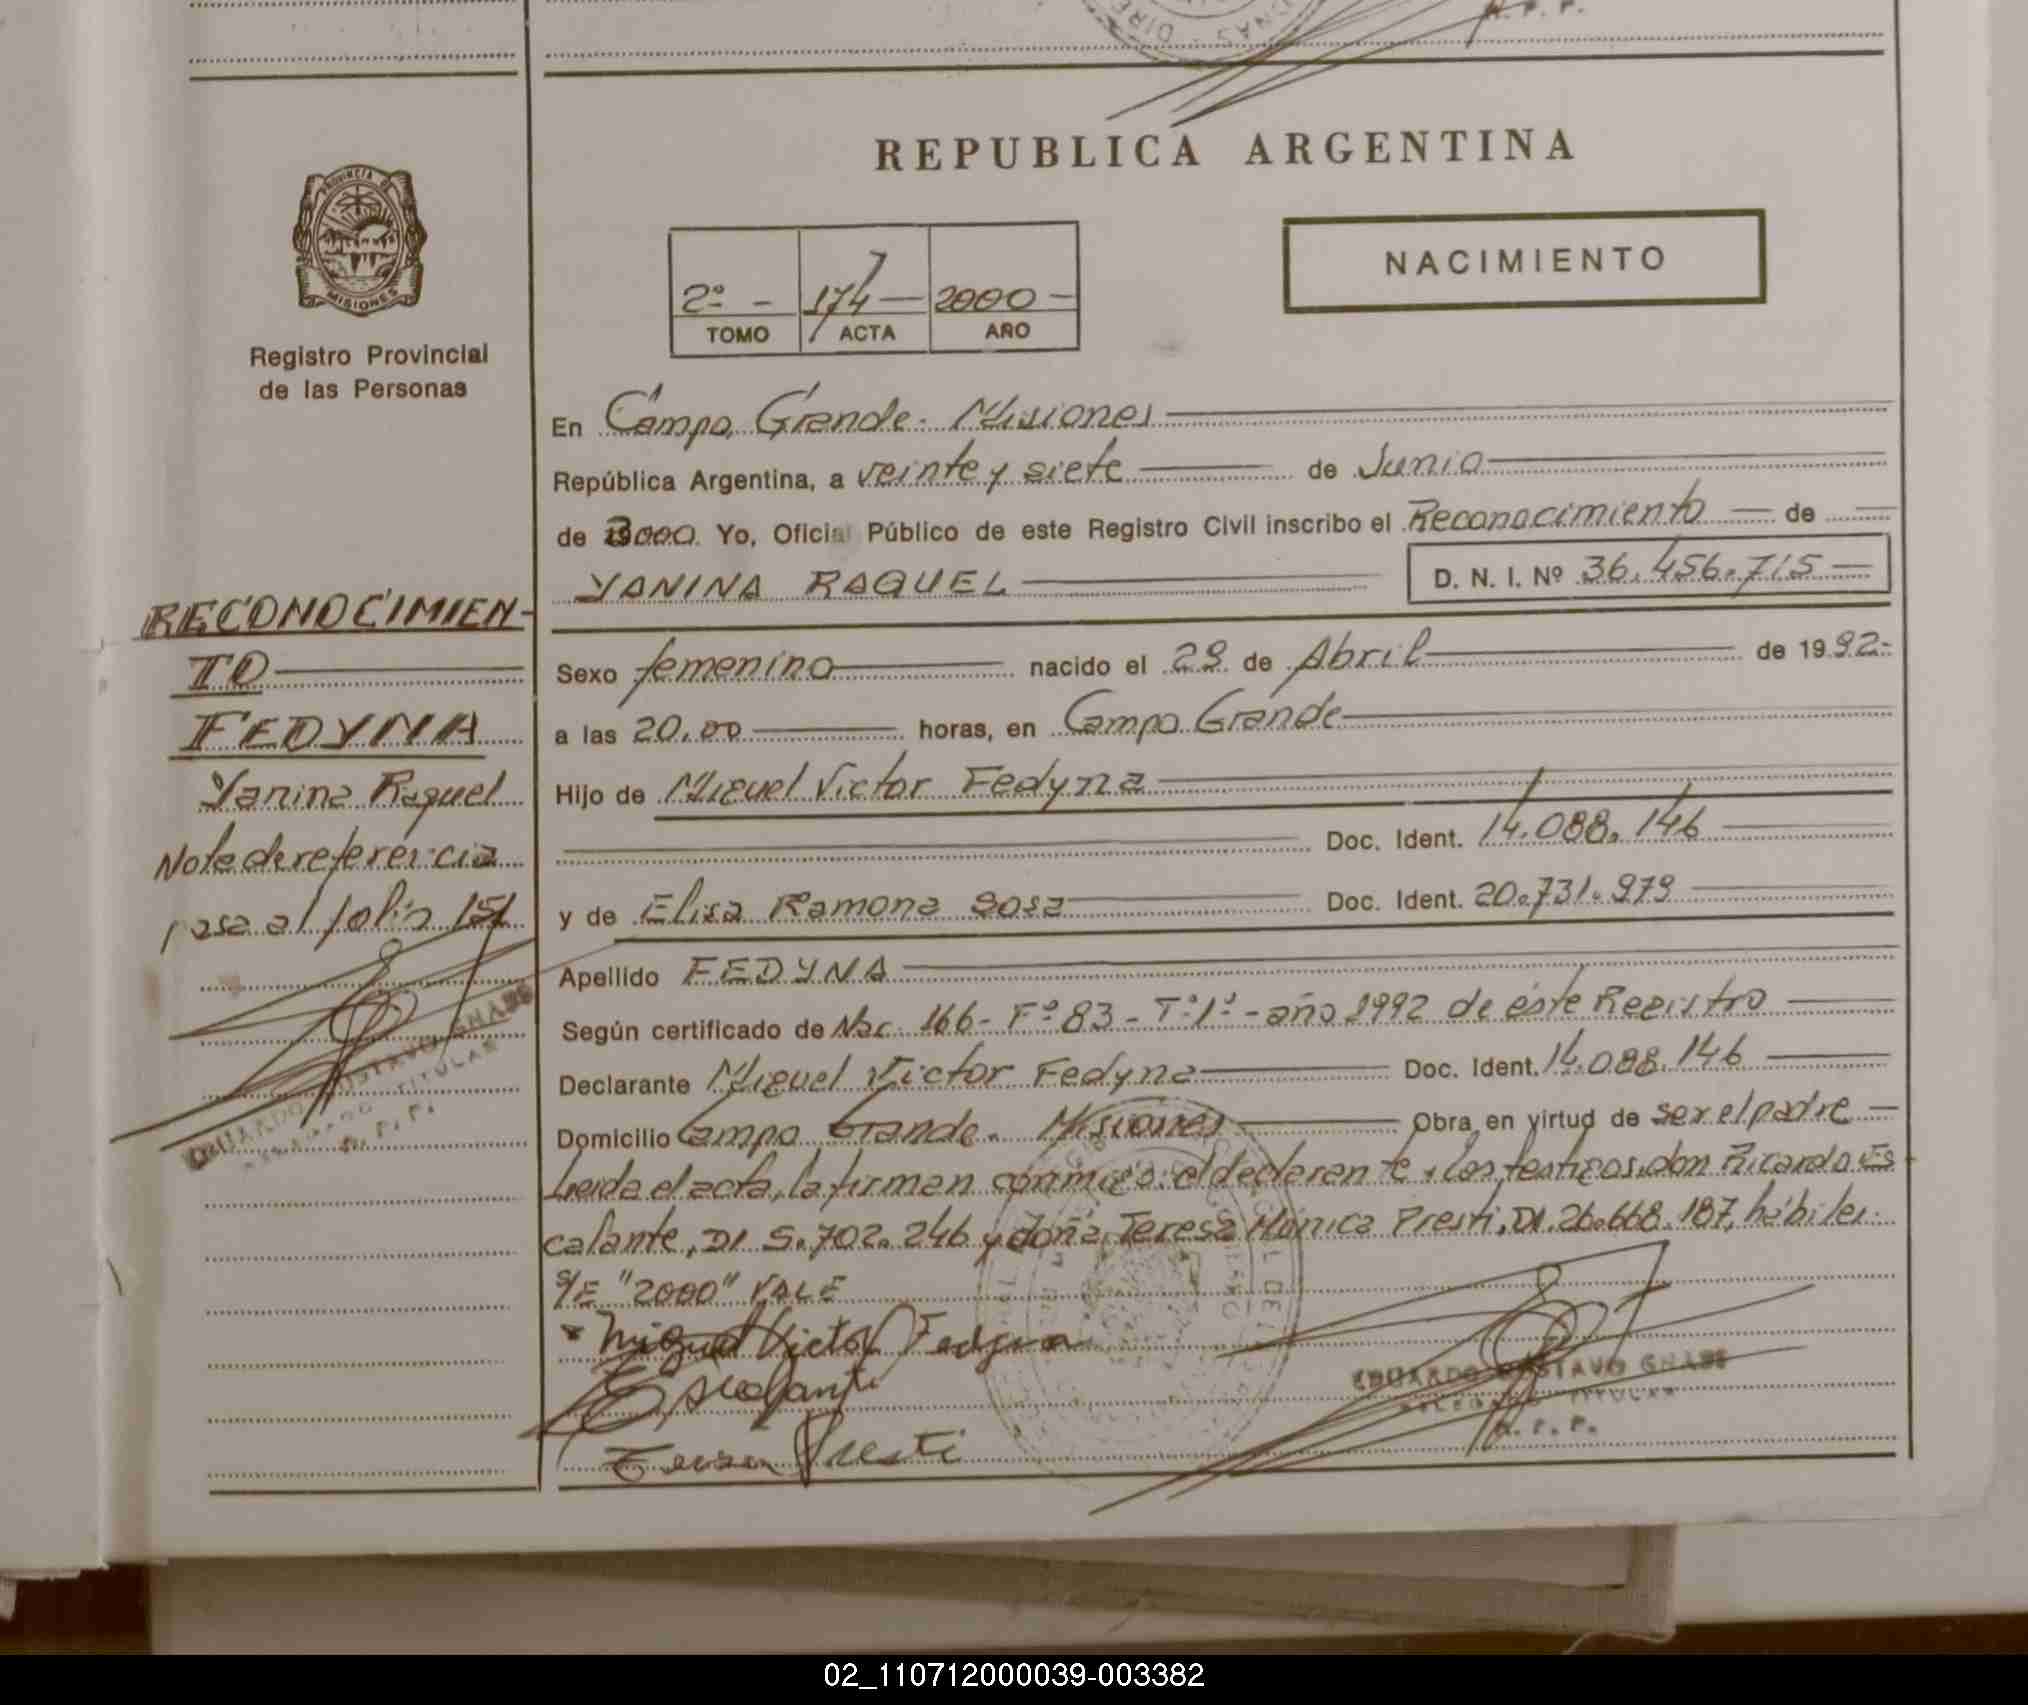 REPUBLICA ARGENTINA
PROVINCIA DE
MISIONES
Registro Provincial
de las Personas
NACIMIENTO
2º - 174 - 2000 -
TOMO ACTA AÑO
En Campo Grande. Misiones
República Argentina, a veinte y siete de Junio
de 2000. Yo, Oficial Público de este Registro Civil inscribo el Reconocimiento de
YANINA RAQUEL D. N. I. Nº 36.456.715
Sexo femenino nacido el 29 de Abril de 1992-
a las 20,00 horas, en Campo Grande
Hijo de Miguel Victor Fedyna
Doc. Ident. 14.088.146
y de Elisa Ramona Sosa Doc. Ident. 20.731.979
Apellido FEDYNA
Según certificado de Nac. 166- Fº 83 - Tº1º - año 1992 de éste Registro
Declarante Miguel Victor Fedyna Doc. Ident. 14.088.146
Domicilio Campo Grande. Misiones Obra en virtud de ser el padre
Leida el acta, la firman conmigo: el declarante y los testigos, don Ricardo Es
calante, DI 5.702.246 y doña Teresa Mónica Presti, DI. 26.668.187, hábiles.
S/E "2000" VALE
Miguel Victor Fedyna
Escalante
Teresa Presti
EDUARDO GUSTAVO GNASS
DELEGADO TITULAR
R. P. P.
RECONOCIMIEN-
TO
FEDYNA
Yanina Raquel
Nota de referencia
pasa al folio 151
EDUARDO GUSTAVO GNASS
DELEGADO TITULAR
R. P. P.
02_110712000039-003382